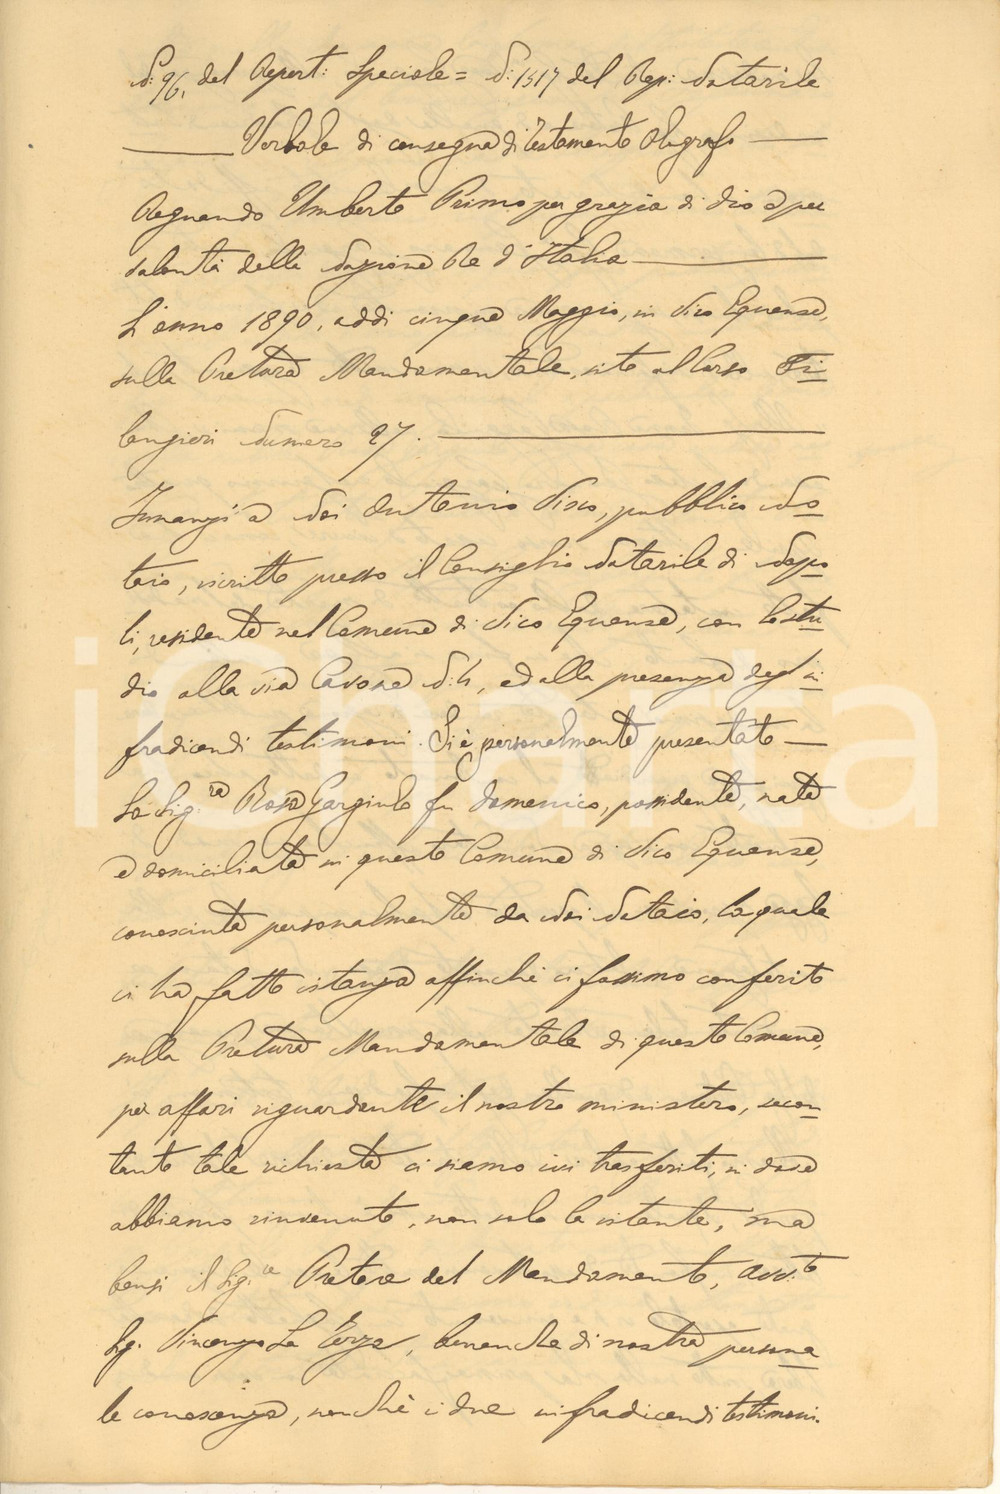 N: 96, del Repert: Speciale = N: 1517 del Rep: Notarile
Verbale di consegna di Testamento Olografo
Regnando Umberto Primo per grazia di Dio e per
volontà della Nazione Re d'Italia
L'anno 1890, addì cinque Maggio, in Vico Equense,
sulla Pretura Mandamentale, sito al Corso Fi-
langieri Numero 27.
Innanzi a Noi Antonio Visco, pubblico No-
taio, iscritto presso il Consiglio Notarile di Napo-
li, residente nel Comune di Vico Equense, con lo stu-
dio alla via Cavone N: 4, ed alla presenza degl'in-
fradicendi testimoni. Si è personalmente presentato
La Sig.ra Rosa Gargiulo fu Domenico, possidente, nata
e domiciliata in questo Comune di Vico Equense,
conosciuta personalmente da Noi Notaio, la quale
ci ha fatto istanza affinchè ci fossimo conferito
sulla Pretura Mandamentale di questo Comune,
per affari riguardante il nostro ministero, secon-
tanto tale richiesta ci siamo ivi trasferiti, in dove
abbiamo rinvenuto, non solo la istante, ma
bensi il Sig.re Pretore del Mandamento, Avv.to
Sig. Vincenzo La Terza, benanche di nostra persona-
le conoscenza, nonchè i due infradicendi testimoni.
iCharta